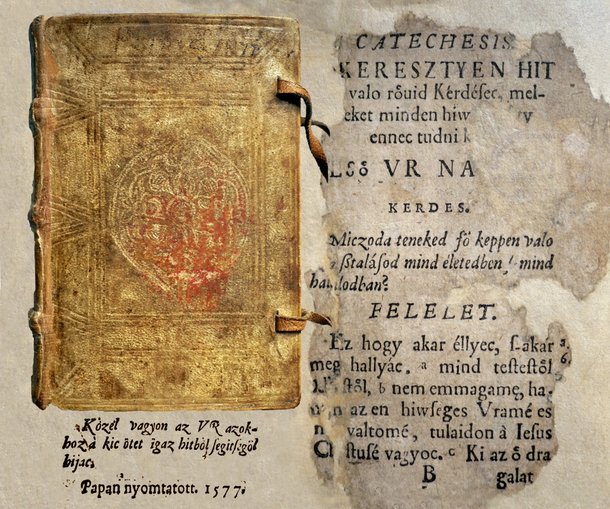 CATECHESIS.
KERESZTYEN HIT
valo rőuid Kérdésec, mel-
eket minden hiw
ennec tudni k
VR NA
KERDES.
Miczoda teneked fő keppen valo
ßtalásod mind életedben / mind
ha lodban?
FELELET.
Ez hogy akar éllyec, s akar a.
meg hallyác. a mind testestől 6.
stől, b nem emmagamę, ha-
az en hiwseges Vramé es
valtomé, tulaidon à Iesus
stusé vagyoc. c Ki az ő dra
B galat
Közel vagyon az VR azok-
hoz à kic őtet igaz hitből segitségöl
hijac.
Papan nyomtatott. 1577.